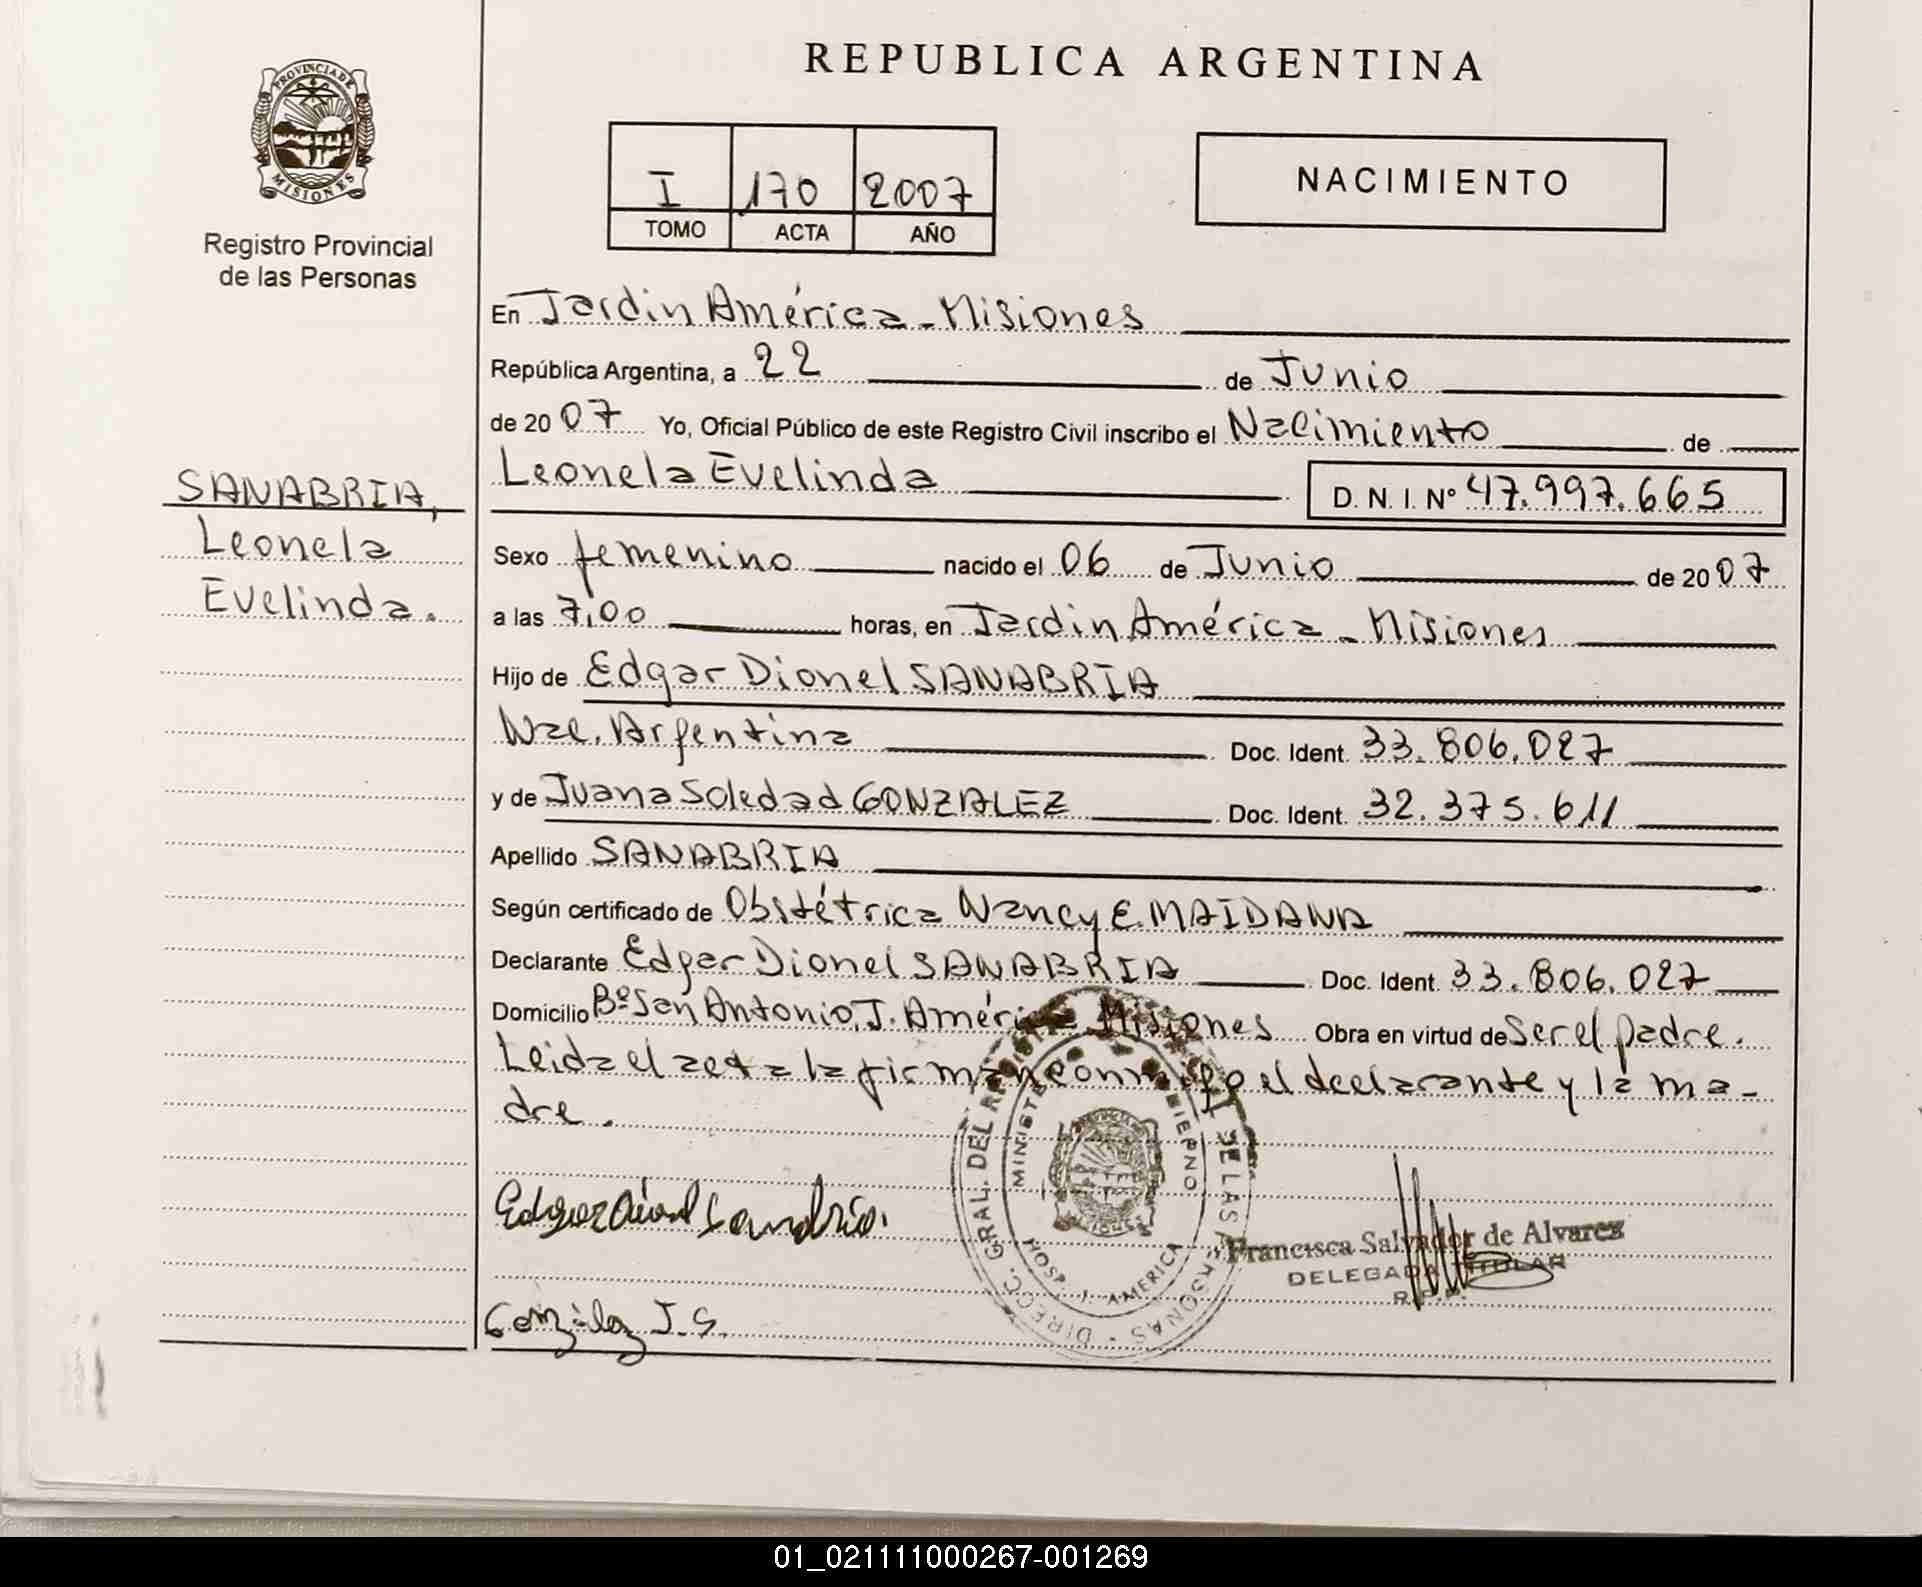 REPUBLICA ARGENTINA
PROVINCIA DE
MISIONES
Registro Provincial
de las Personas
I 170 2007
TOMO ACTA AÑO
NACIMIENTO
SANABRIA,
Leonela
Evelinda.
En Jardin América - Misiones
República Argentina, a 22 de Junio
de 2007 Yo, Oficial Público de este Registro Civil inscribo el Nacimiento de
Leonela Evelinda D. N. I. Nº 47.997.665
Sexo femenino nacido el 06 de Junio de 2007
a las 7,00 horas, en Jardin América - Misiones
Hijo de Edgar Dionel SANABRIA
Nac. Argentina Doc. Ident. 33.806.027
y de Juana Soledad GONZALEZ Doc. Ident. 32.375.611
Apellido SANABRIA
Según certificado de Obstétrica Nancy E. MAIDANA
Declarante Edgar Dionel SANABRIA Doc. Ident. 33.806.027
Domicilio Bº San Antonio, J. América Misiones Obra en virtud de ser el padre.
Leida el acta la firman conmigo el declarante y la ma-
dre.
DIRECC. GRAL. DEL DE LAS PERSONAS
HOSP. J. AMERICA
Francisca Salvador de Alvarez
DELEGADA TITULAR
R.P.P.
Gonzalez J.S.
01_021111000267-001269